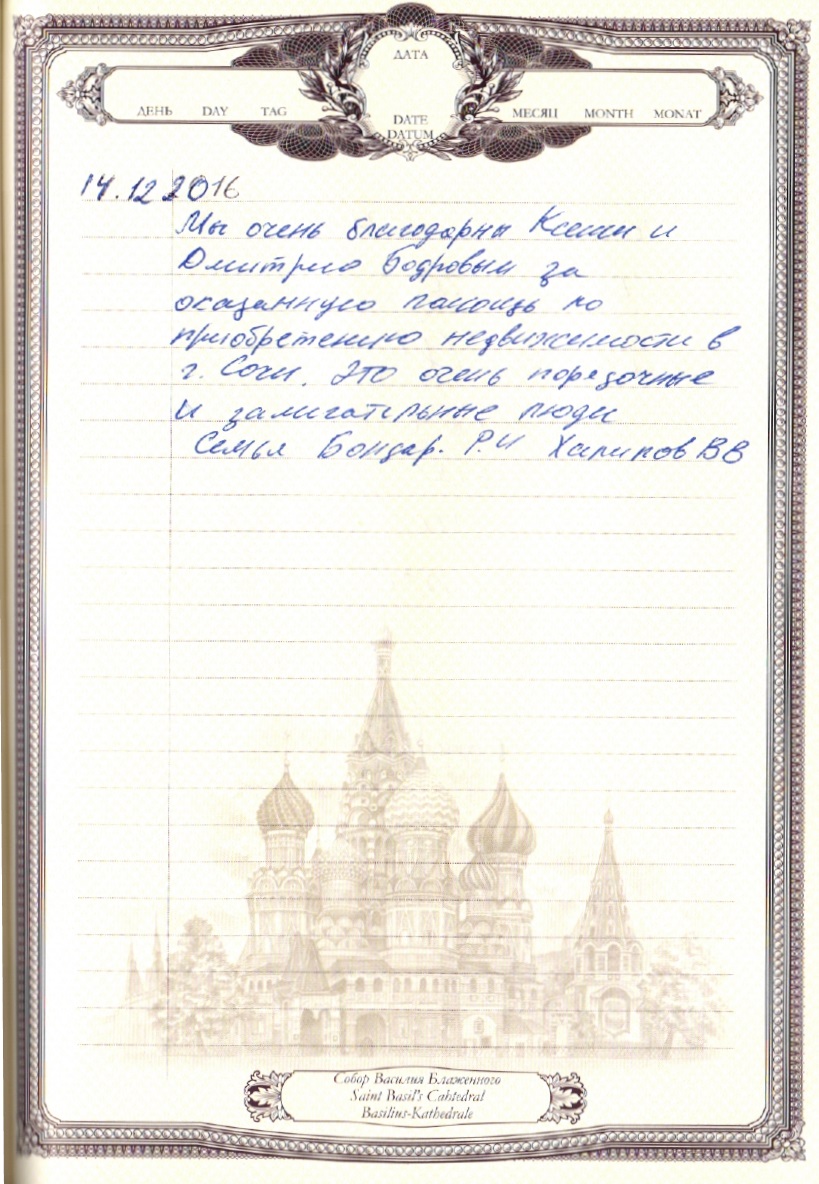 ДАТА
ДЕНЬ DAY TAG
DATE
DATUM
МЕСЯЦ MONTH MONAT
14.12.2016
Мы очень благодарны Ксении и
Дмитрию Бодровым за
оказанную помощь по
приобретению недвижимости в
г. Сочи. Это очень порядочные
и замигательные люди
Семья Бондар. Р.И Халиков ВВ
Собор Василия Блаженного
Saint Basil's Cahtedral
Basilius-Kathedrale